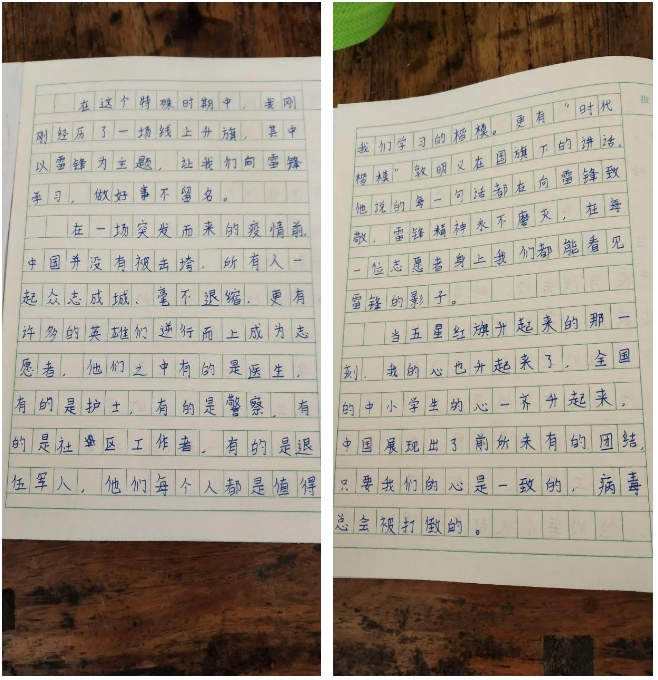 在这个特殊时期中，我刚
刚经历了一场线上升旗，其中
以雷锋为主题，让我们向雷锋
学习，做好事不留名。
在一场突发而来的疫情前，
中国并没有被击垮，所有人一
起众志成城、毫不退缩，更有
许多的英雄们逆行而上成为志
愿者，他们之中有的是医生，
有的是护士，有的是警察，有
的是社区工作者，有的是退
伍军人，他们每个人都是值得
我们学习的楷模。更有“时代
楷模”郭明义在国旗下的讲话，
他说的每一句话都在向雷锋致
敬，雷锋精神永不磨灭，在每
一位志愿者身上我们都能看见
雷锋的影子。
当五星红旗升起来的那一
刻，我的心也升起来了，全国
的中小学生的心一齐升起来，
中国展现出了前所未有的团结，
只要我们的心是一致的，病毒
总会被打倒的。